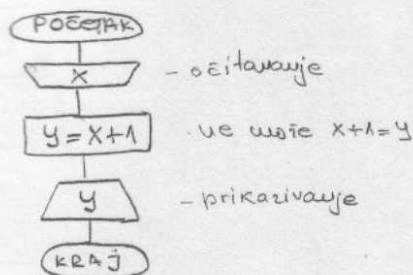 POČETAK
X - očitavanje
Y = X+1 ne može X+1=Y
Y - prikazivanje
KRAJ